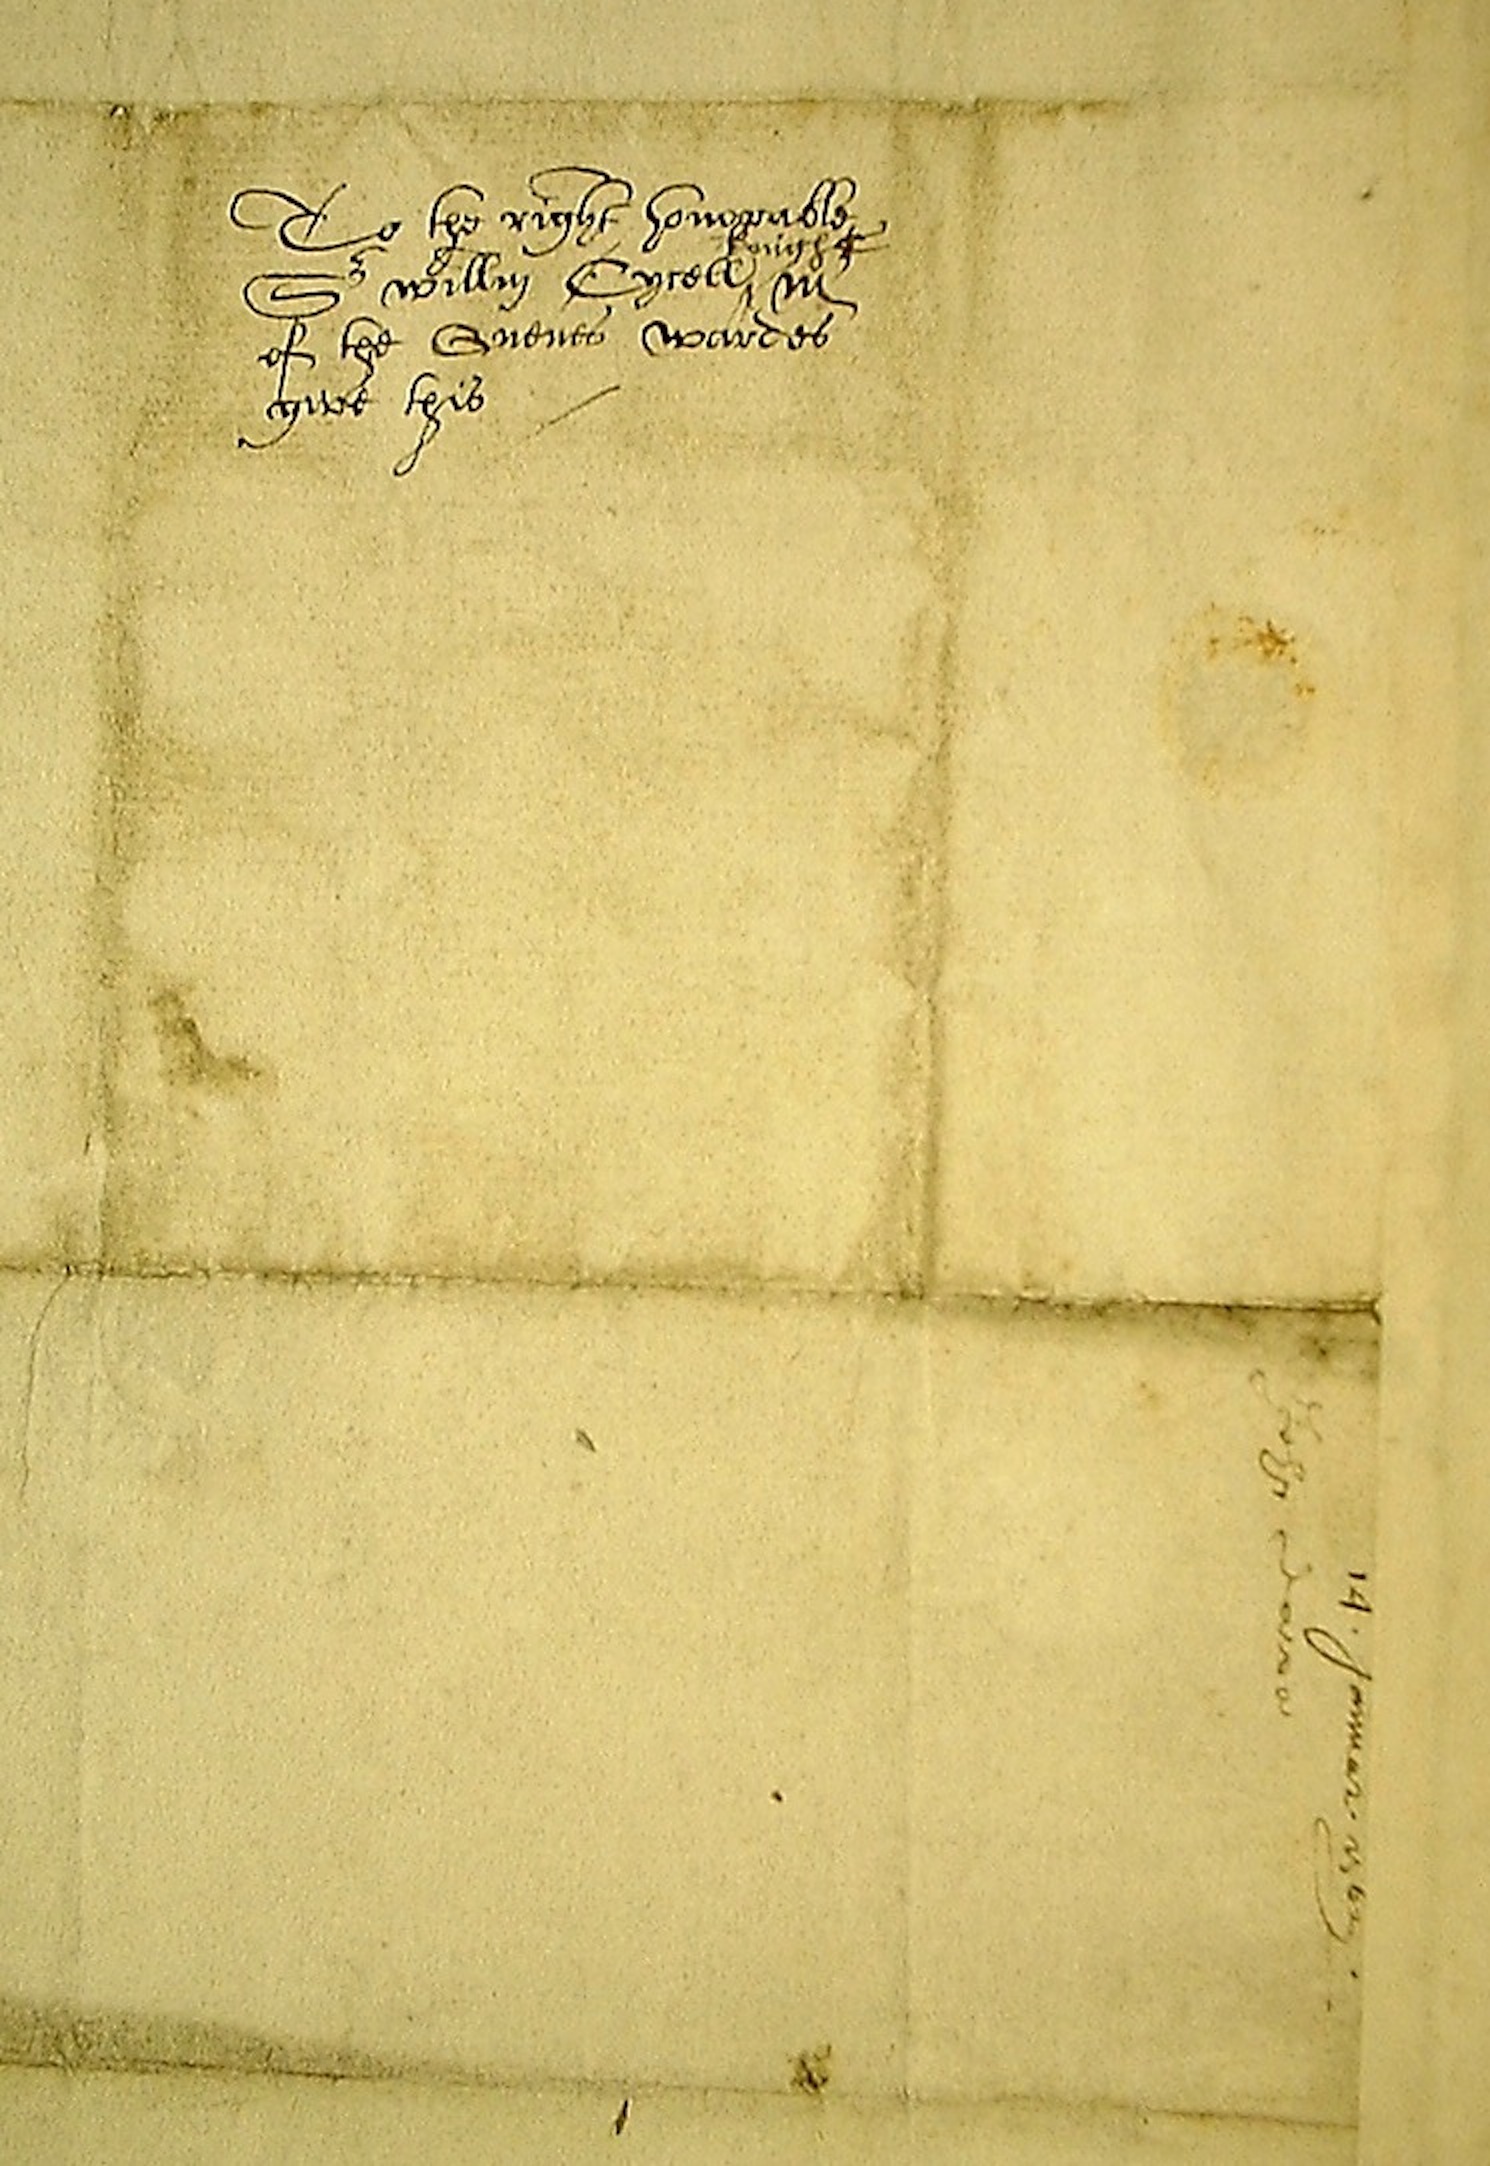 To the right honorable
Sr willm Cycell knight mr
of the Quenes wardes
give this
14. Januar. 156